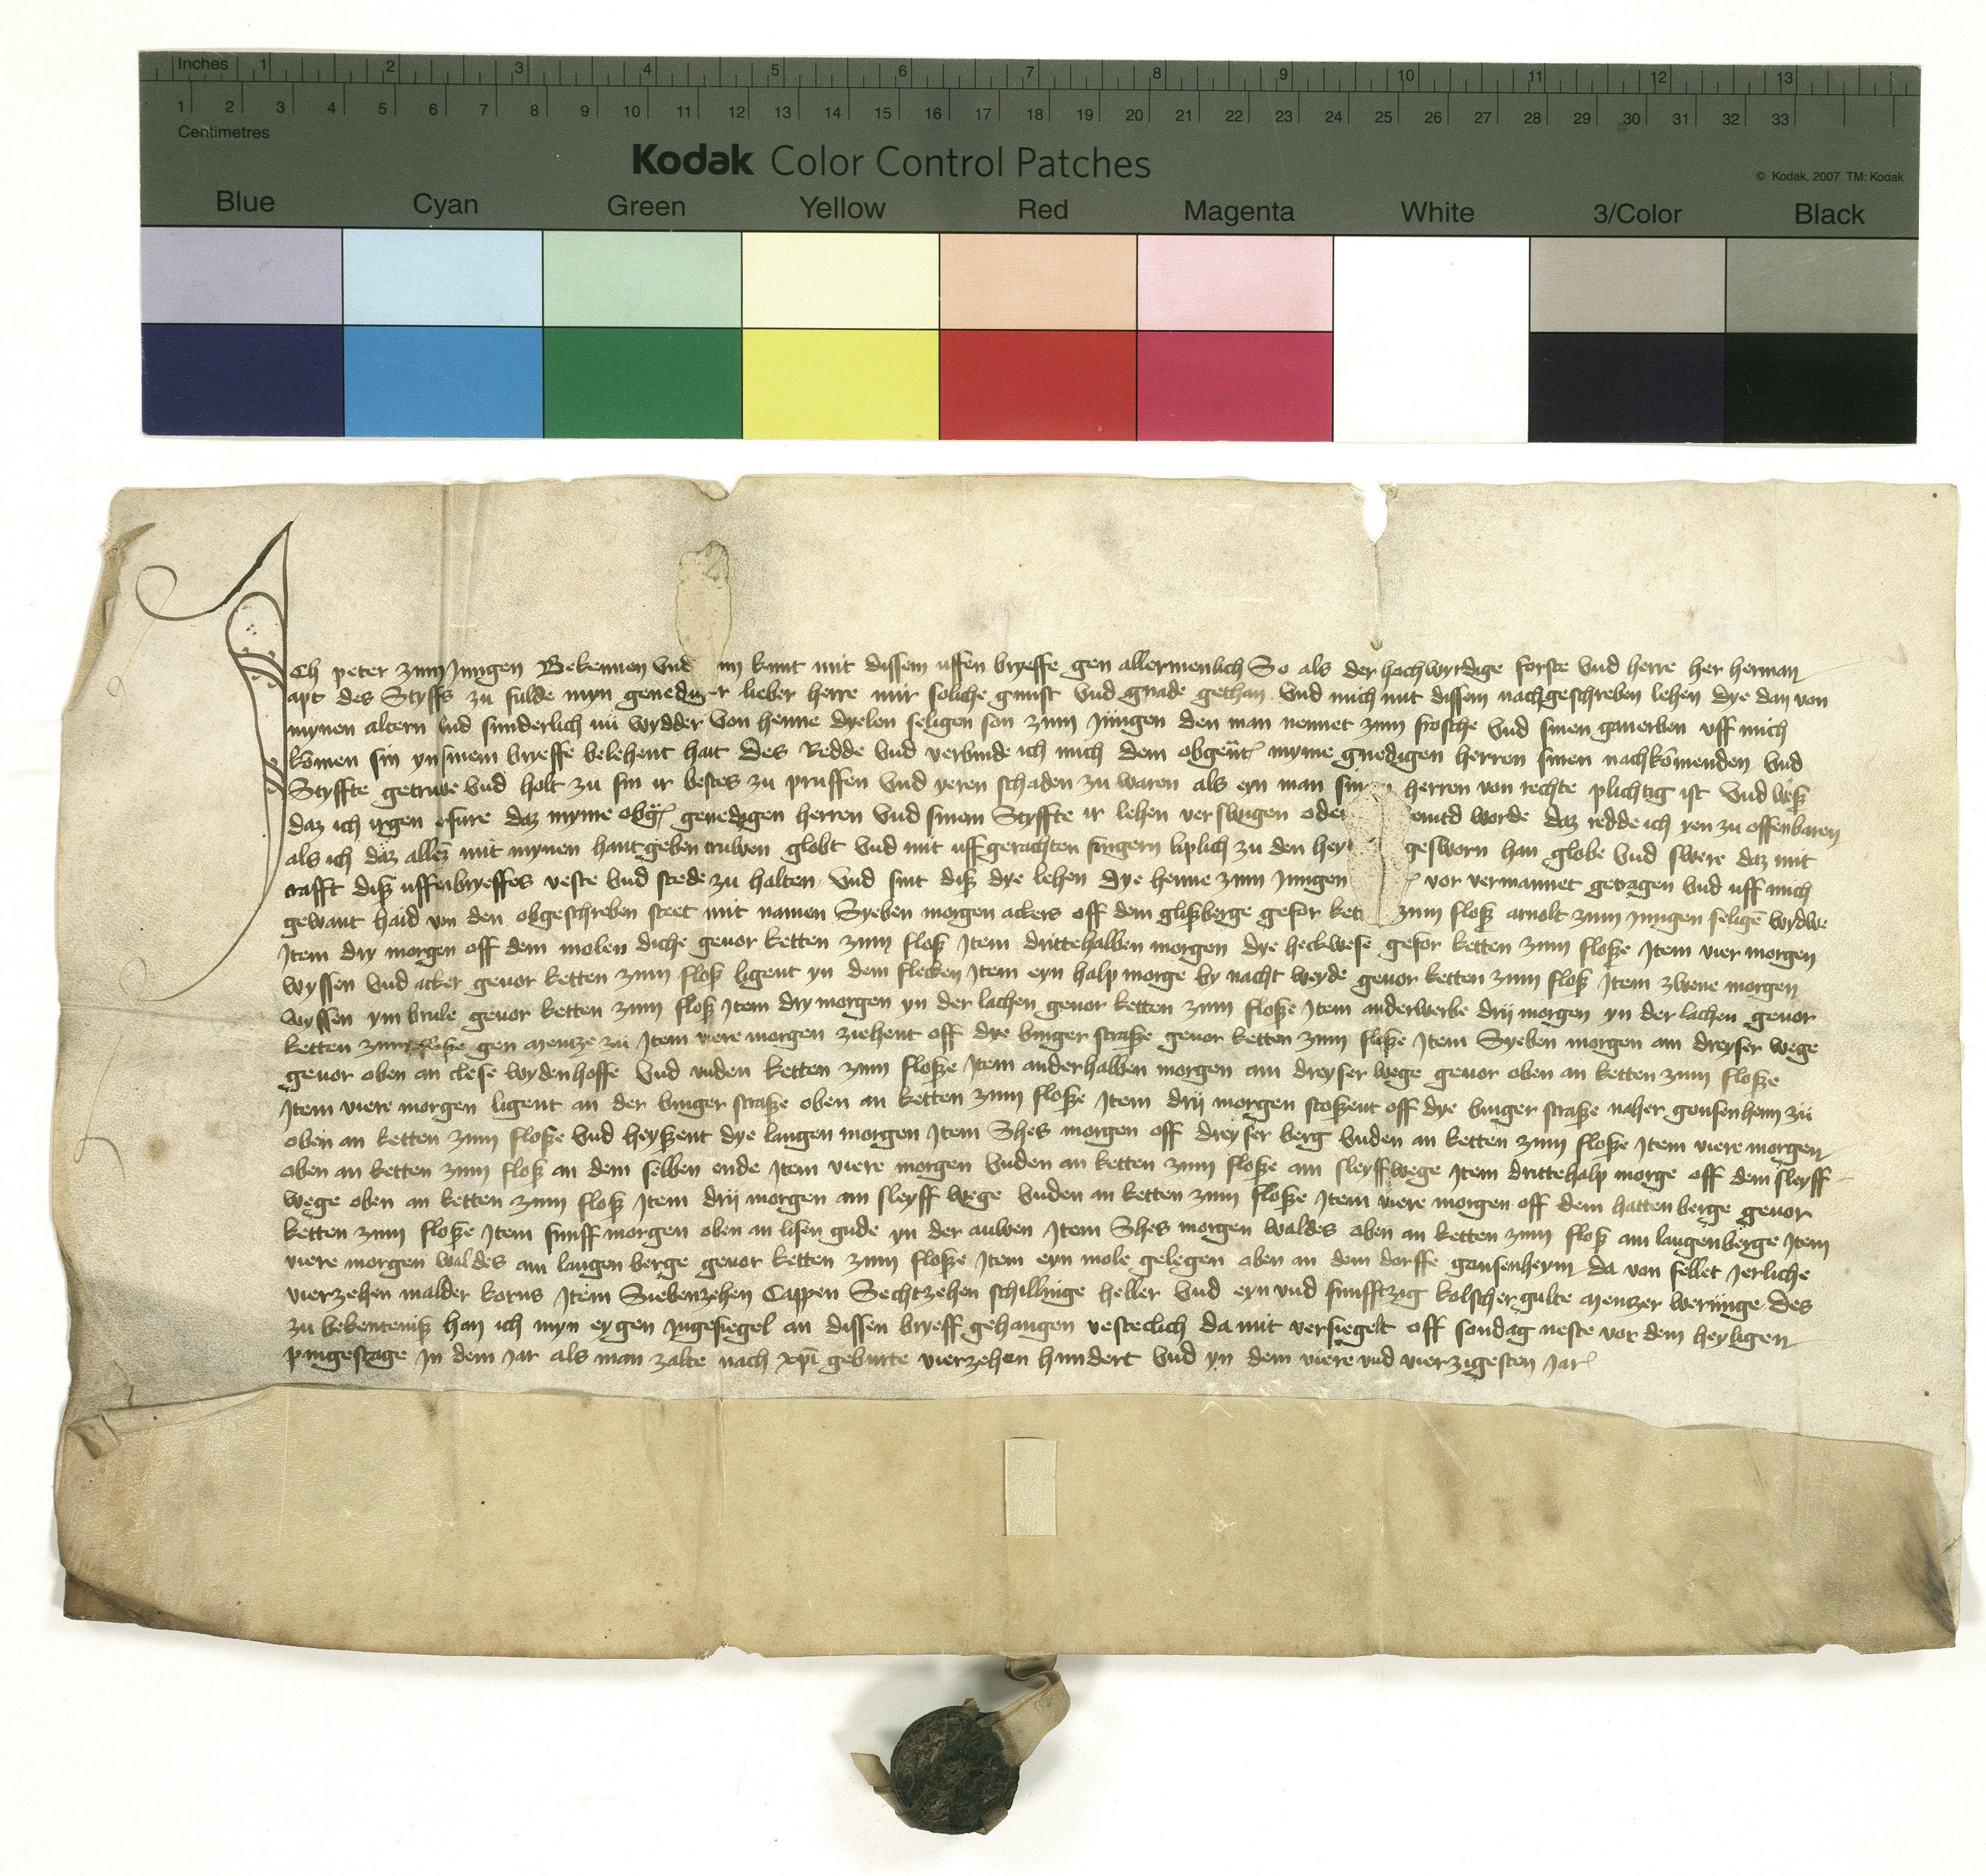 Inches 1 2 3 4 5 6 7 8 9 10 11 12 13
1 2 3 4 5 6 7 8 9 10 11 12 13 14 15 16 17 18 19 20 21 22 23 24 25 26 27 28 29 30 31 32 33
Centimetres
Kodak Color Control Patches
© Kodak, 2007 TM: Kodak
Blue Cyan Green Yellow Red Magenta White 3/Color Black
Ich peter zum Jungen Bekennen vnd kunt mit dissem uffen bryeffe gen allermenlich So als der hochwyrdige forste vnd herre her herman
apt des Styffs zu fulde myn genediger lieber herre mir soliche gunst vnd gnade gethan vnd mich mit dissem nachgeschreben lehen dye dan von
mynen altern vnd sunderlich nu wydder von henne dyelen seligen son zum Jungen den man nennet zum frosche vnd sinen ganerben uff mich
komen sin yn sinem bryeffe belehent hait Des Redde vnd verbinde ich mich dem obgent myme gnedigen herren sinen nachkomenden vnd
Styffte getruwe vnd holt zu sin ir bestes zu pruffen vnd yeren schaden zu waren als eyn man herren von rechte plichtig ist vnd weß
daz ich irgen erfure daz myme obg genedigen herren vnd sinem Styffte ir lehen verswigen oder worde daz redde ich yen zu offenbaren
als ich daz alles mit mynen hant geben truwen globt vnd mit uff gerachten fingern liplich zu den gesworn han globe vnd swere daz mit
crafft diß uffenbryeffes veste vnd stede zu halten vnd sint diß dye lehen dye henne zum Jungen vor vermannet getragen vnd uff mich
gewant haid von den obgeschreben steet mit namen Syeben morgen ackers off dem glißberge gefor ketten zum floß arnolt zum Jungen selige wydwe
Item dry morgen off dem molen diche geuor ketten zum floß Item drittehalben morgen dye heckwese gefor ketten zum floße Item vier morgen
wyssen vnd acker geuor ketten zum floß ligent yn dem flecken Item eyn halp morge by nacht weyde geuor ketten zum floß Item zwene morgen
wyssen ym brule geuor ketten zum floß Item dry morgen yn der lachen geuor ketten zum floße Item anderwerbe drij morgen yn der lachen geuor
ketten zum floße gen mentze zu Item viere morgen ziehent off dye binger straße geuor ketten zum floße Item Syeben morgen am dreyser wege
geuor oben an clese wydenhoffe vnd vnden ketten zum floße Item anderhalben morgen am dreyser wege geuor oben an ketten zum floße
Item viere morgen ligent an der binger straße oben an ketten zum floße Item drij morgen stoßent off dye binger straße naher gonsenheim zu
oben an ketten zum floße vnd heyßent dye langen morgen Item Shes morgen off dreyser berg vnden an ketten zum floße Item viere morgen
oben an ketten zum floß an dem selben ende Item viere morgen vnden an ketten zum floße am sleyffwege Item drittehalp morge off dem sleyff
wege oben an ketten zum floß Item drij morgen am sleyff wege vnden an ketten zum floße Item viere morgen off dem hattenberge geuor
ketten zum floße Item funff morgen oben an lisen gude yn der auwen Item Shes morgen waldes oben an ketten zum floß am langenberge Item
viere morgen waldes am langen berge geuor ketten zum floße Item eyn mole gelegen oben an dem dorffe gonsenheym da von fellet Jerliche
vierzehen malder korns Item Siebenzehen Cappen Sechtzehen schillinge heller vnd eyn vnd funfftzig kolscher gulte mentzer werunge Des
zu bekenteniß han ich myn eygen Ingesiegel an dissen bryeff gehangen vesteclich da mit versiegelt off sondag neste vor dem heyligen
pingestage In dem Jar als man zalte nach xpi geburte vierzehen hundert vnd yn dem viere vnd vierzigesten Jar